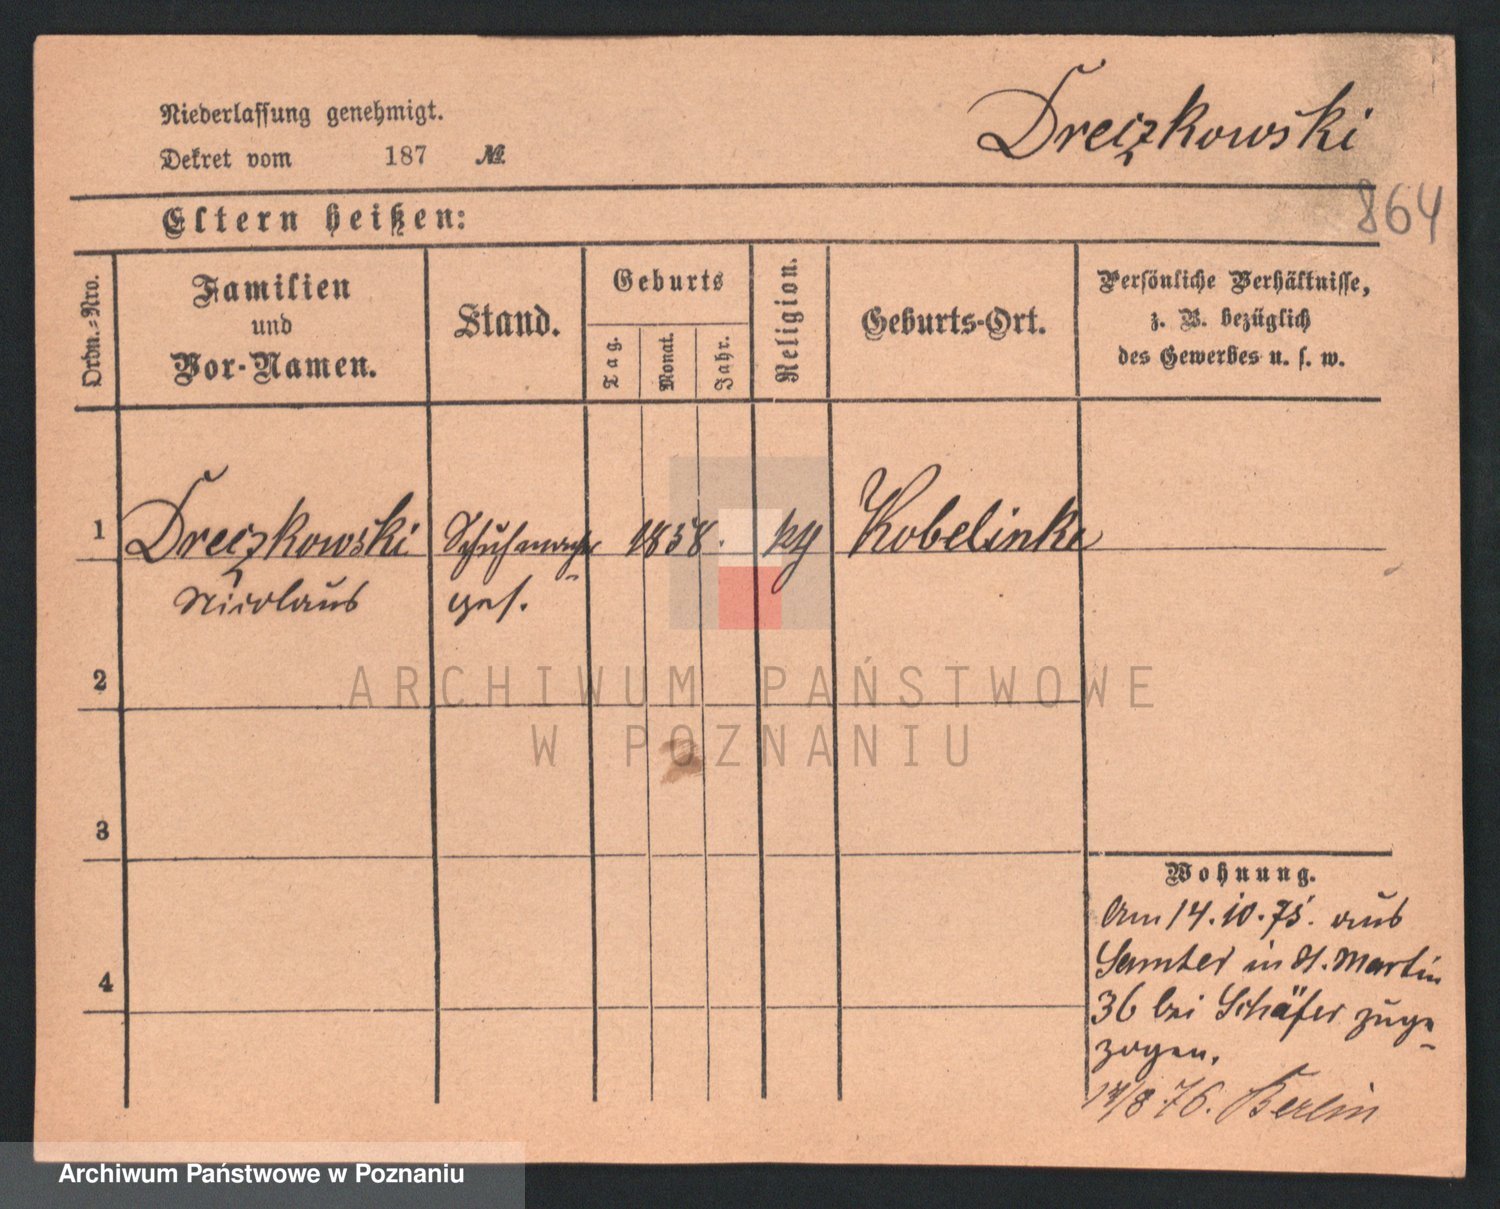 Niederlassung genehmigt.
Dekret vom 187 №
Dreczkowski
864
Eltern heißen:
Ordn.-Nro.
Familien
und
Vor-Namen.
Stand.
Geburts
Tag.
Monat.
Jahr.
Religion.
Geburts-Ort.
Persönliche Verhältnisse,
z. B. bezüglich
des Gewerbes u. s. w.
1 Dreczkowski Schuhmacher 1858. Kobelinke
Nicolaus ges.
2
ARCHIWUM PAŃSTWOWE
W POZNANIU
3
Wohnung.
Am 14.10.75. aus
Samter in St. Martin
36 bei Schäfer zuge-
zogen.
4
/8 76. Berlin
Archiwum Państwowe w Poznaniu